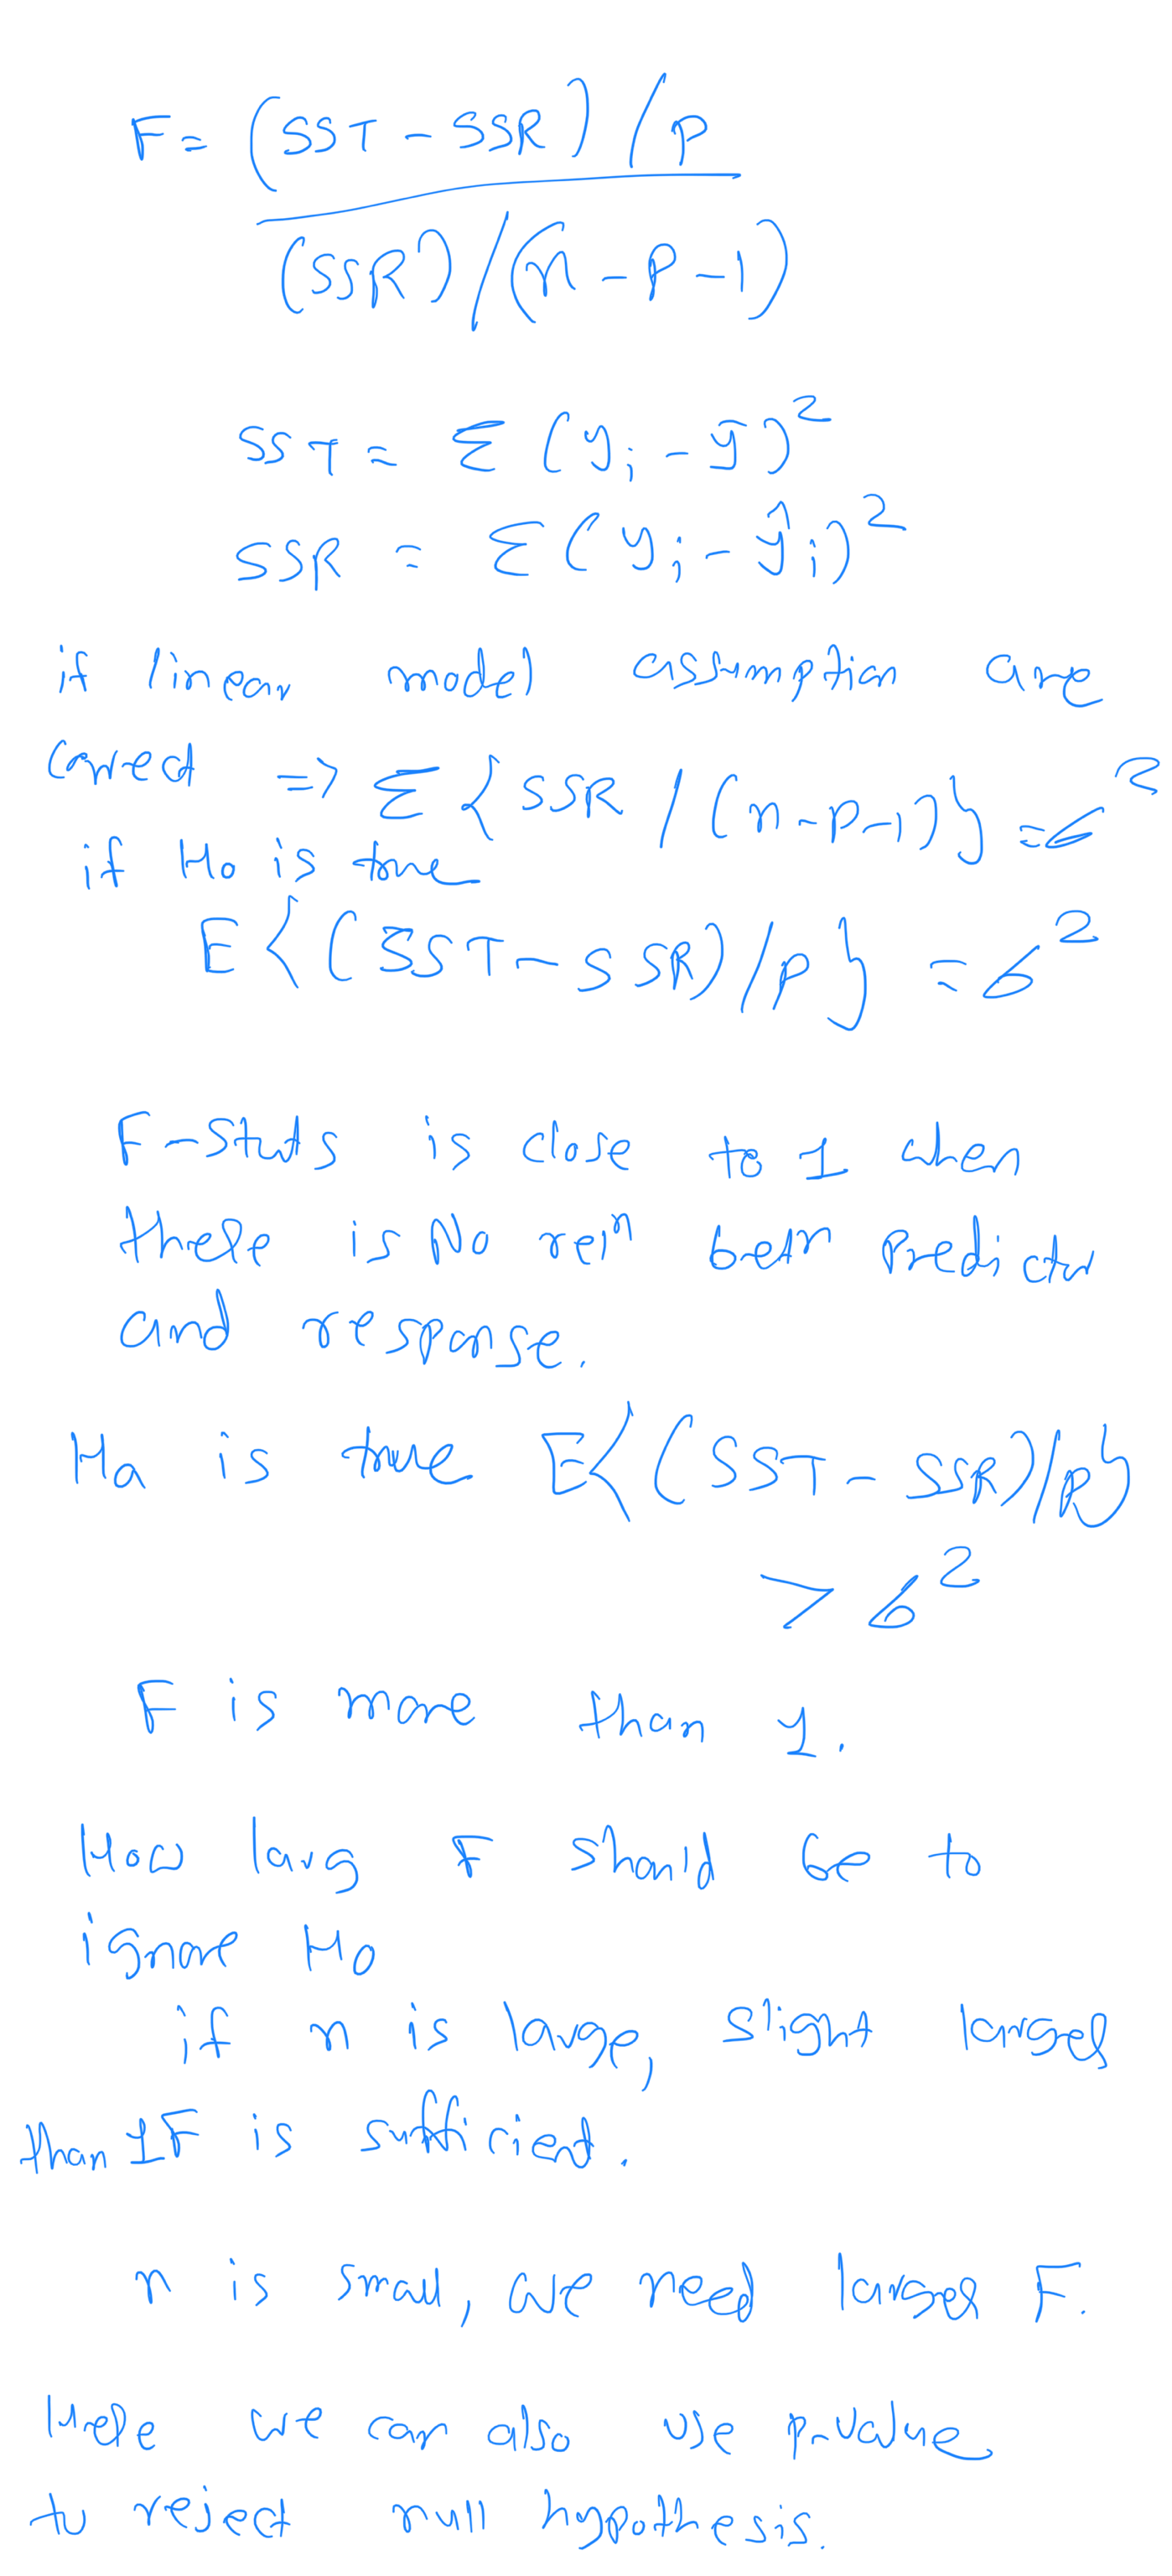 F= (SST - SSR) / p
(SSR)/(n - p - 1)
SST = Σ (yi - ȳ)²
SSR = Σ(yi - ŷi)²
if linear model assumption are
correct => Σ {SSR / (n-p-1)} = σ²
if Ho is true
E {(SST - SSR)/p} = σ²
F-Stats is close to 1 when
there is No relⁿ betⁿ Predictor
and response.
Ha is true E{(SST - SSR)/p}
> σ²
F is more than 1.
How larg F should be to
ignore Ho
if n is large, slight larger
than 1 F is sufficient.
n is small, we need larger F.
Here we can also use p-value
to reject null hypothesis.